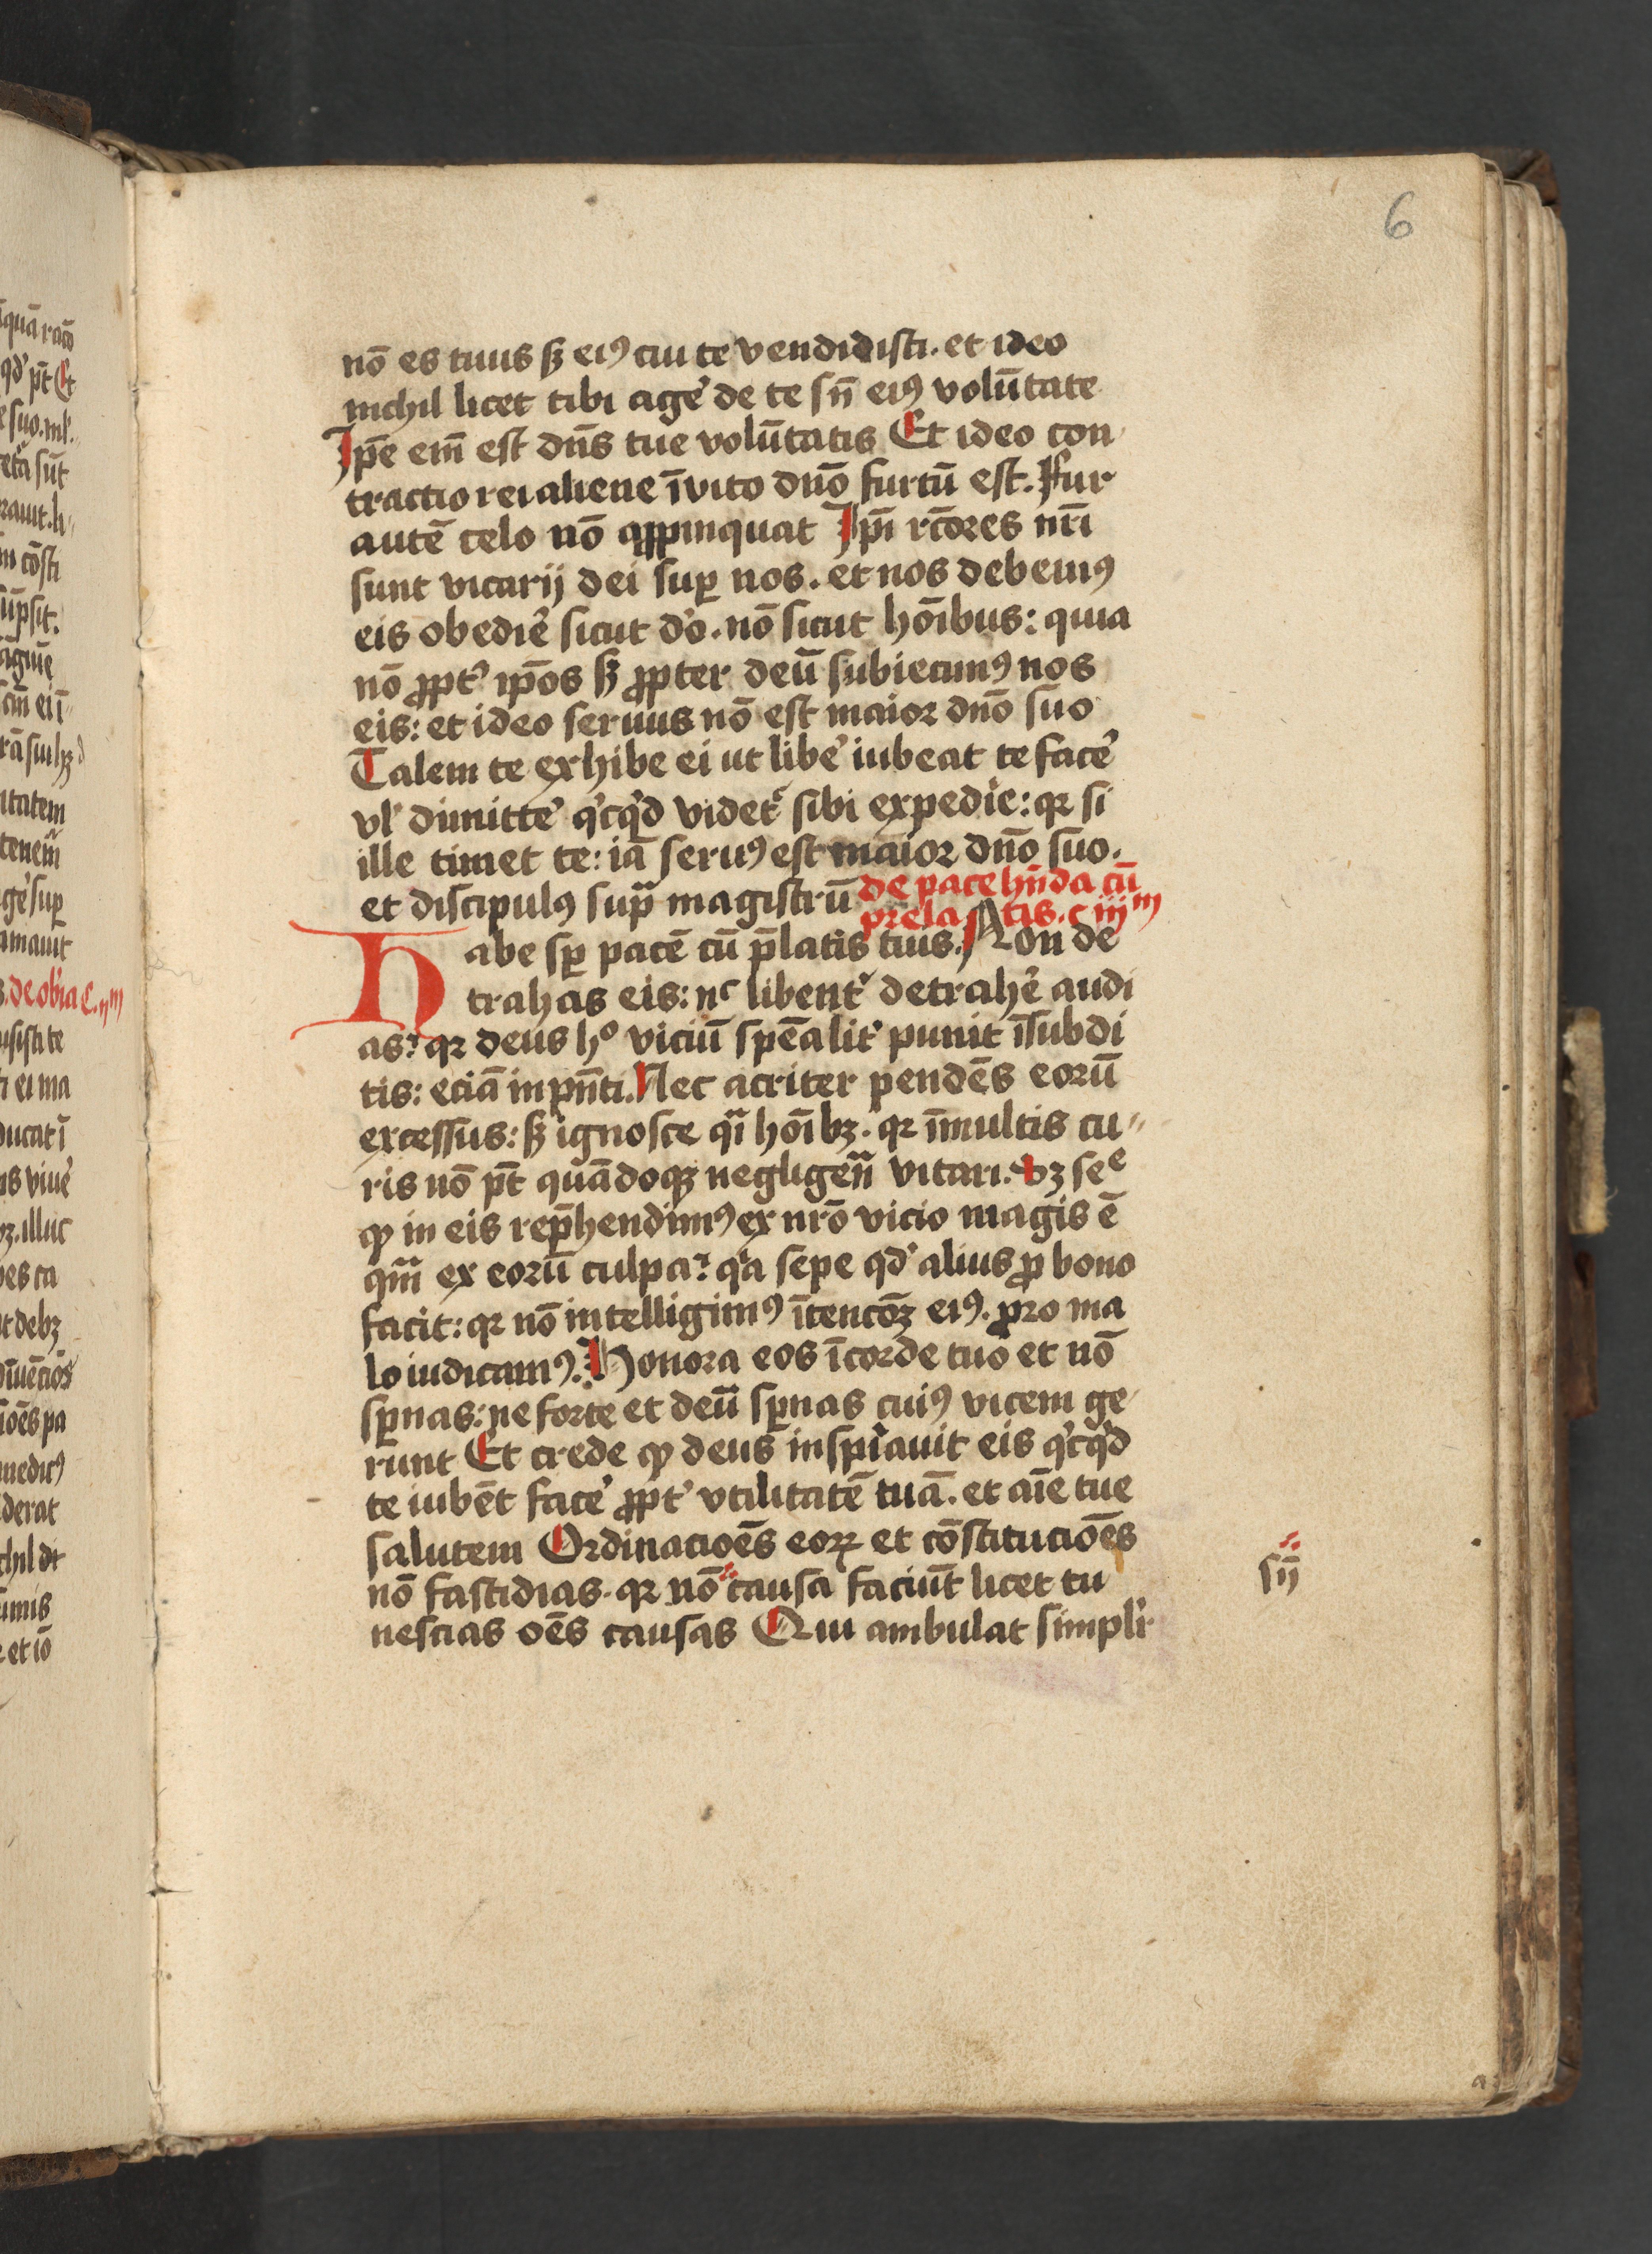 6
nō es tuus sꝫ eiꝰ cui te vendidisti. et ideo
nichil licet tibi agē de te sn̄ eiꝰ volūtate
Ip̄e em̄ est dn̄s tue volūtatis Et ideo con
tractio rei aliene īvito dn̄o furtū est. Fur
autē celo nō aꝓpinquat Ip̄i rc̄ores nr̄i
sunt vicarij dei suꝑ nos. et nos debemꝰ
eis obedir̄e sicut dō. nō sicut hōibus: quia
nō ꝓpt̄ ip̄os sꝫ ꝓpter deū subiecimꝰ nos
eis: et ideo seruus nō est maior dn̄o suo
Talem te exhibe ei ut libē iubeat te facē
vl̓ dimittē qͥcqͥd videt᷑ sibi expedīe: qꝛ si
ille timet te: iā seruꝰ est maior dn̄o suo.
et discipulꝰ supᷓ magistrū de pace hn̄da cū
prelatis. c iijᵐ
Habe sꝑ pacē cū p̄latis tuis. Non de
trahas eis: nᶜ libent᷑ detrahē audi
as: qꝛ deus hᵒ viciū sp̄ealit᷑ punit ī subdi
tis: eciā in pn̄ti. Nec acriter pendēs eorū
excessus: sꝫ ignosce qᷓi hōibꝫ. qꝛ ī multis cu
ris nō pt̄ quādoqꝫ negligen̄ vitari. Et sꝫ seᵉ
ꝙ in eis rep̄hendimꝰ ex nr̄o vicio magis ē
qm̄ ex eorū culpa: qͥa sepe qd̓ alius ꝓ bono
facit: qꝛ nō intelligimꝰ ītencōꝫ eiꝰ. pro ma
lo iudicamꝰ. Honora eos ī corde tuo et nō
sꝑnas: ne forte et deū sꝑnas cuiꝰ vicem ge
runt Et crede ꝙ deus inspiͥauit eis qͥcqͥd
te iubēt facē ꝓpt̓ vtilitatē tuā. et aīe tue
salutem Ordinacioēs eoꝝ et cōstitucioēs
nō fastidias. qꝛ nō causa faciūt licet tu
sn̄
nescias oēs causas Qui ambulat simpli